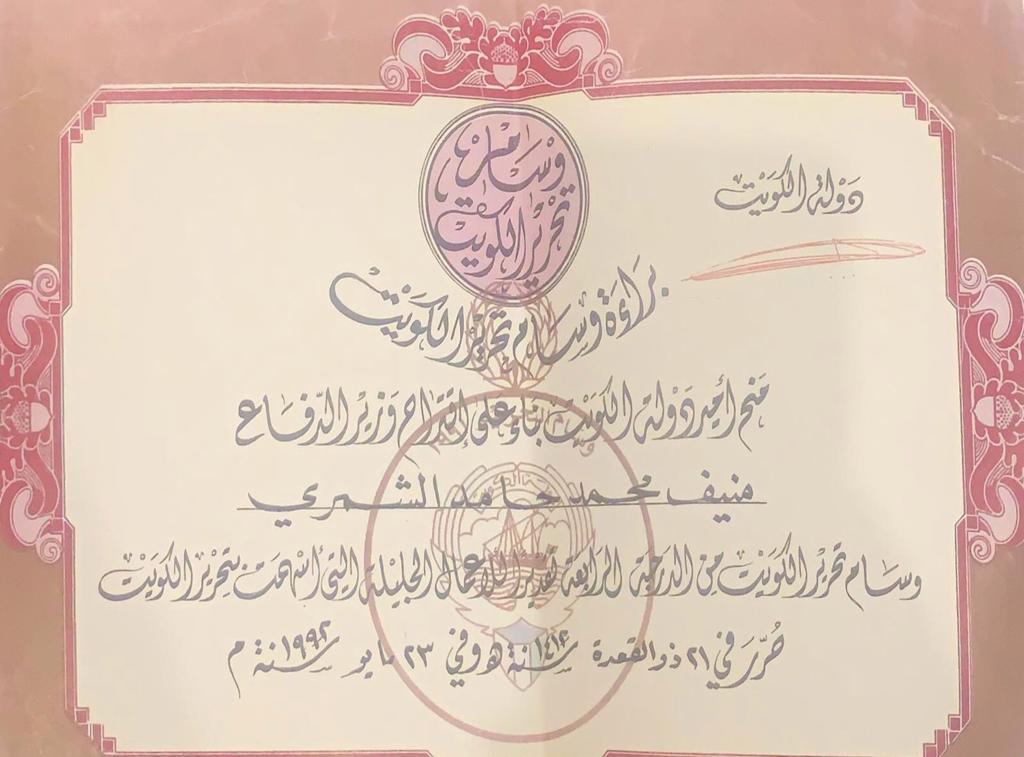 دولة الكويت
وسام
تحرير الكويت
براءة وسام تحرير الكويت
منح أمير دولة الكويت بناء على إقتراح وزير الدفاع
منيف محمد حامد الشمري
وسام تحرير الكويت من الدرجة الرابعة تقديراً للأعمال الجليلة التي أسهمت بتحرير الكويت
حُرّر في ٢١ ذو القعدة سنة ١٤١٢ هـ وفي ٢٣ مايو سنة ١٩٩٢ م